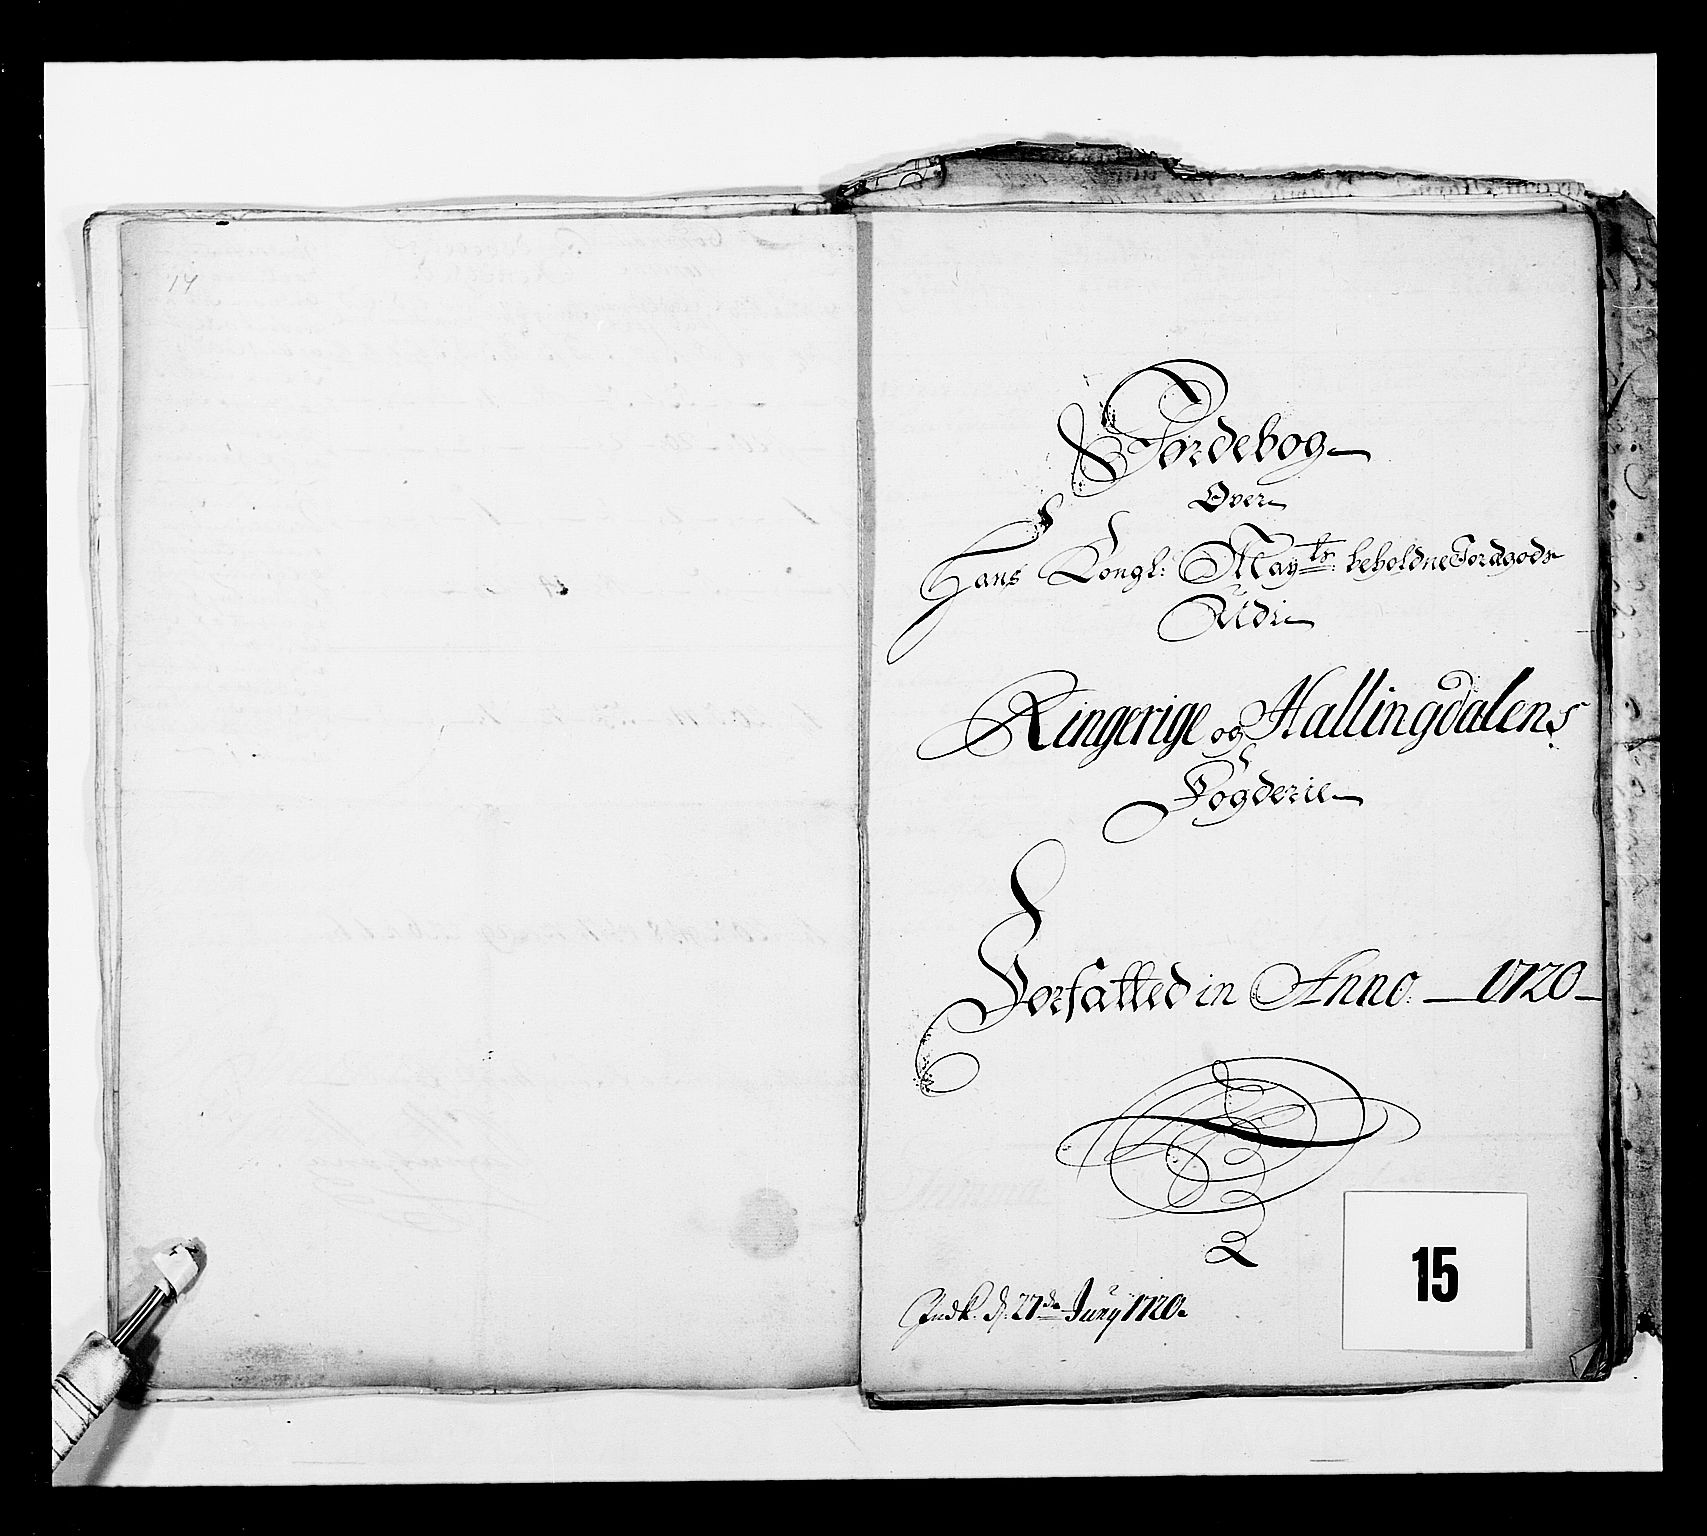 14
Jordebog
Over
Hans Kongl: Mayts: beholdne Jordgods
Udi
Ringerige og Hallingdalens
Fogderie
Forfatted in Anno. 1720
Indk. d. 27de Juny 1720.
15